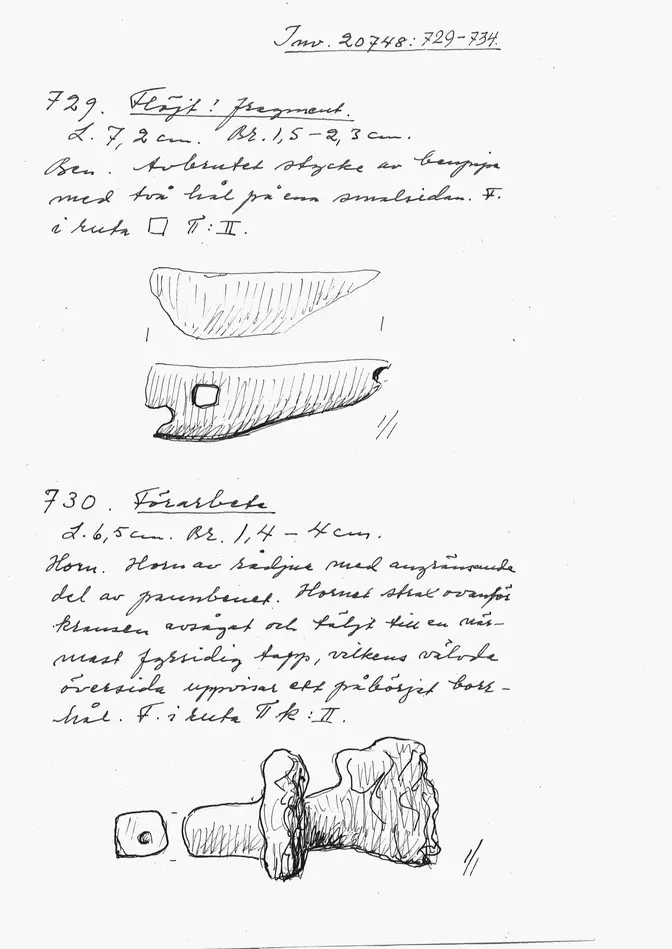 Inv. 20748:729-734.
729. Flöjt? fragment.
L. 7,2 cm. Br. 1,5-2,3 cm.
Ben. Avbrutet stycke av benpipa
med två hål på ena smalsidan. F.
i ruta □ Π:II.
1/1
730. Förarbete
L. 6,5 cm. Br. 1,4 - 4 cm.
Horn. Horn av rådjur med angränsande
del av pannbenet. Hornet strax ovanför
kransen avsågat och täljt till en när-
mast fyrsidig tapp, vilkens välvda
översida uppvisar ett påbörjat borr-
hål. F. i ruta Π k:II.
1/1